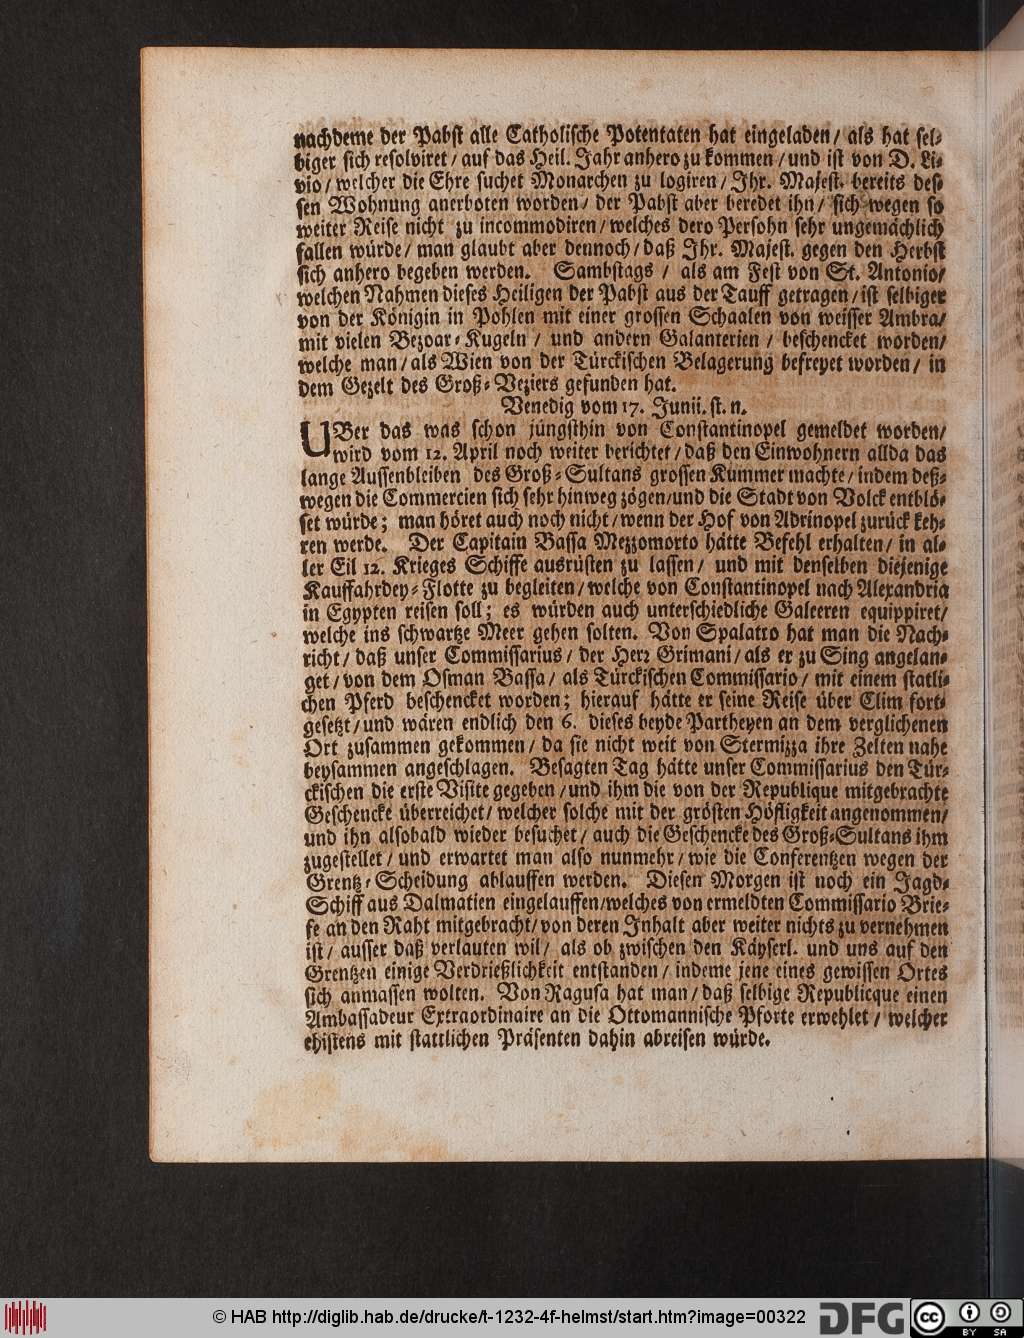 nachdeme der Pabst alle Catholische Potentaten hat eingeladen / als hat sel-
biger sich resolviret / auf das Heil. Jahr anhero zu kommen / und ist von D. Li-
vio / welcher die Ehre suchet Monarchen zu logiren / Ihr. Majest. bereits des-
sen Wohnung anerboten worden / der Pabst aber beredet ihn / sich wegen so
weiter Reise nicht zu incommodiren / welches dero Persohn sehr ungemächlich
fallen würde / man glaubt aber dennoch / daß Ihr. Majest. gegen den Herbst
sich anhero begeben werden. Sambstags / als am Fest von St. Antonio /
welchen Nahmen dieses Heiligen der Pabst aus der Tauff getragen / ist selbiger
von der Königin in Pohlen mit einer grossen Schaalen von weisser Ambra /
mit vielen Bezoar-Kugeln / und andern Galanterien / beschencket worden /
welche man / als Wien von der Türckischen Belagerung befreyet worden / in
dem Gezelt des Groß-Veziers gefunden hat.
Venedig vom 17. Junii. st. n.
UBer das was schon jüngsthin von Constantinopel gemeldet worden /
wird vom 12. April noch weiter berichtet / daß den Einwohnern allda das
lange Aussenbleiben des Groß-Sultans grossen Kummer machte / indem deß-
wegen die Commercien sich sehr hinweg zögen / und die Stadt von Volck entblö-
set würde; man höret auch noch nicht / wenn der Hof von Adrinopel zurück keh-
ren werde. Der Capitain Bassa Mezzomorto hätte Befehl erhalten / in al-
ler Eil 12. Krieges Schiffe ausrüsten zu lassen / und mit denselben diejenige
Kauffahrdey-Flotte zu begleiten / welche von Constantinopel nach Alexandria
in Egypten reisen soll; es würden auch unterschiedliche Galeeren equippiret /
welche ins schwartze Meer gehen solten. Von Spalatro hat man die Nach-
richt / daß unser Commissarius / der Herr Grimani / als er zu Sing angelan-
get / von dem Osman Bassa / als Türckischen Commissario / mit einem statli-
chen Pferd beschencket worden; hierauf hätte er seine Reise über Clim fort-
gesetzt / und wären endlich den 6. dieses beyde Partheyen an dem verglichenen
Ort zusammen gekommen / da sie nicht weit von Stermizza ihre Zelten nahe
beysammen angeschlagen. Besagten Tag hätte unser Commissarius den Tür-
ckischen die erste Visite gegeben / und ihm die von der Republique mitgebrachte
Geschencke überreichet / welcher solche mit der grösten Höfligkeit angenommen /
und ihn alsobald wieder besuchet / auch die Geschencke des Groß-Sultans ihm
zugestellet / und erwartet man also nunmehr / wie die Conferentzen wegen der
Grentz-Scheidung ablauffen werden. Diesen Morgen ist noch ein Jagd-
Schiff aus Dalmatien eingelauffen / welches von ermeldten Commissario Brie-
fe an den Raht mitgebracht / von deren Inhalt aber weiter nichts zu vernehmen
ist / ausser daß verlauten wil / als ob zwischen den Käyserl. und uns auf den
Grentzen einige Verdrießlichkeit entstanden / indeme jene eines gewissen Ortes
sich anmassen wolten. Von Ragusa hat man / daß selbige Republicque einen
Ambassadeur Extraordinaire an die Ottomannische Pforte erwehlet / welcher
ehistens mit stattlichen Präsenten dahin abreisen würde.
© HAB http://diglib.hab.de/drucke/t-1232-4f-helmst/start.htm?image=00322
DFG
cc BY SA